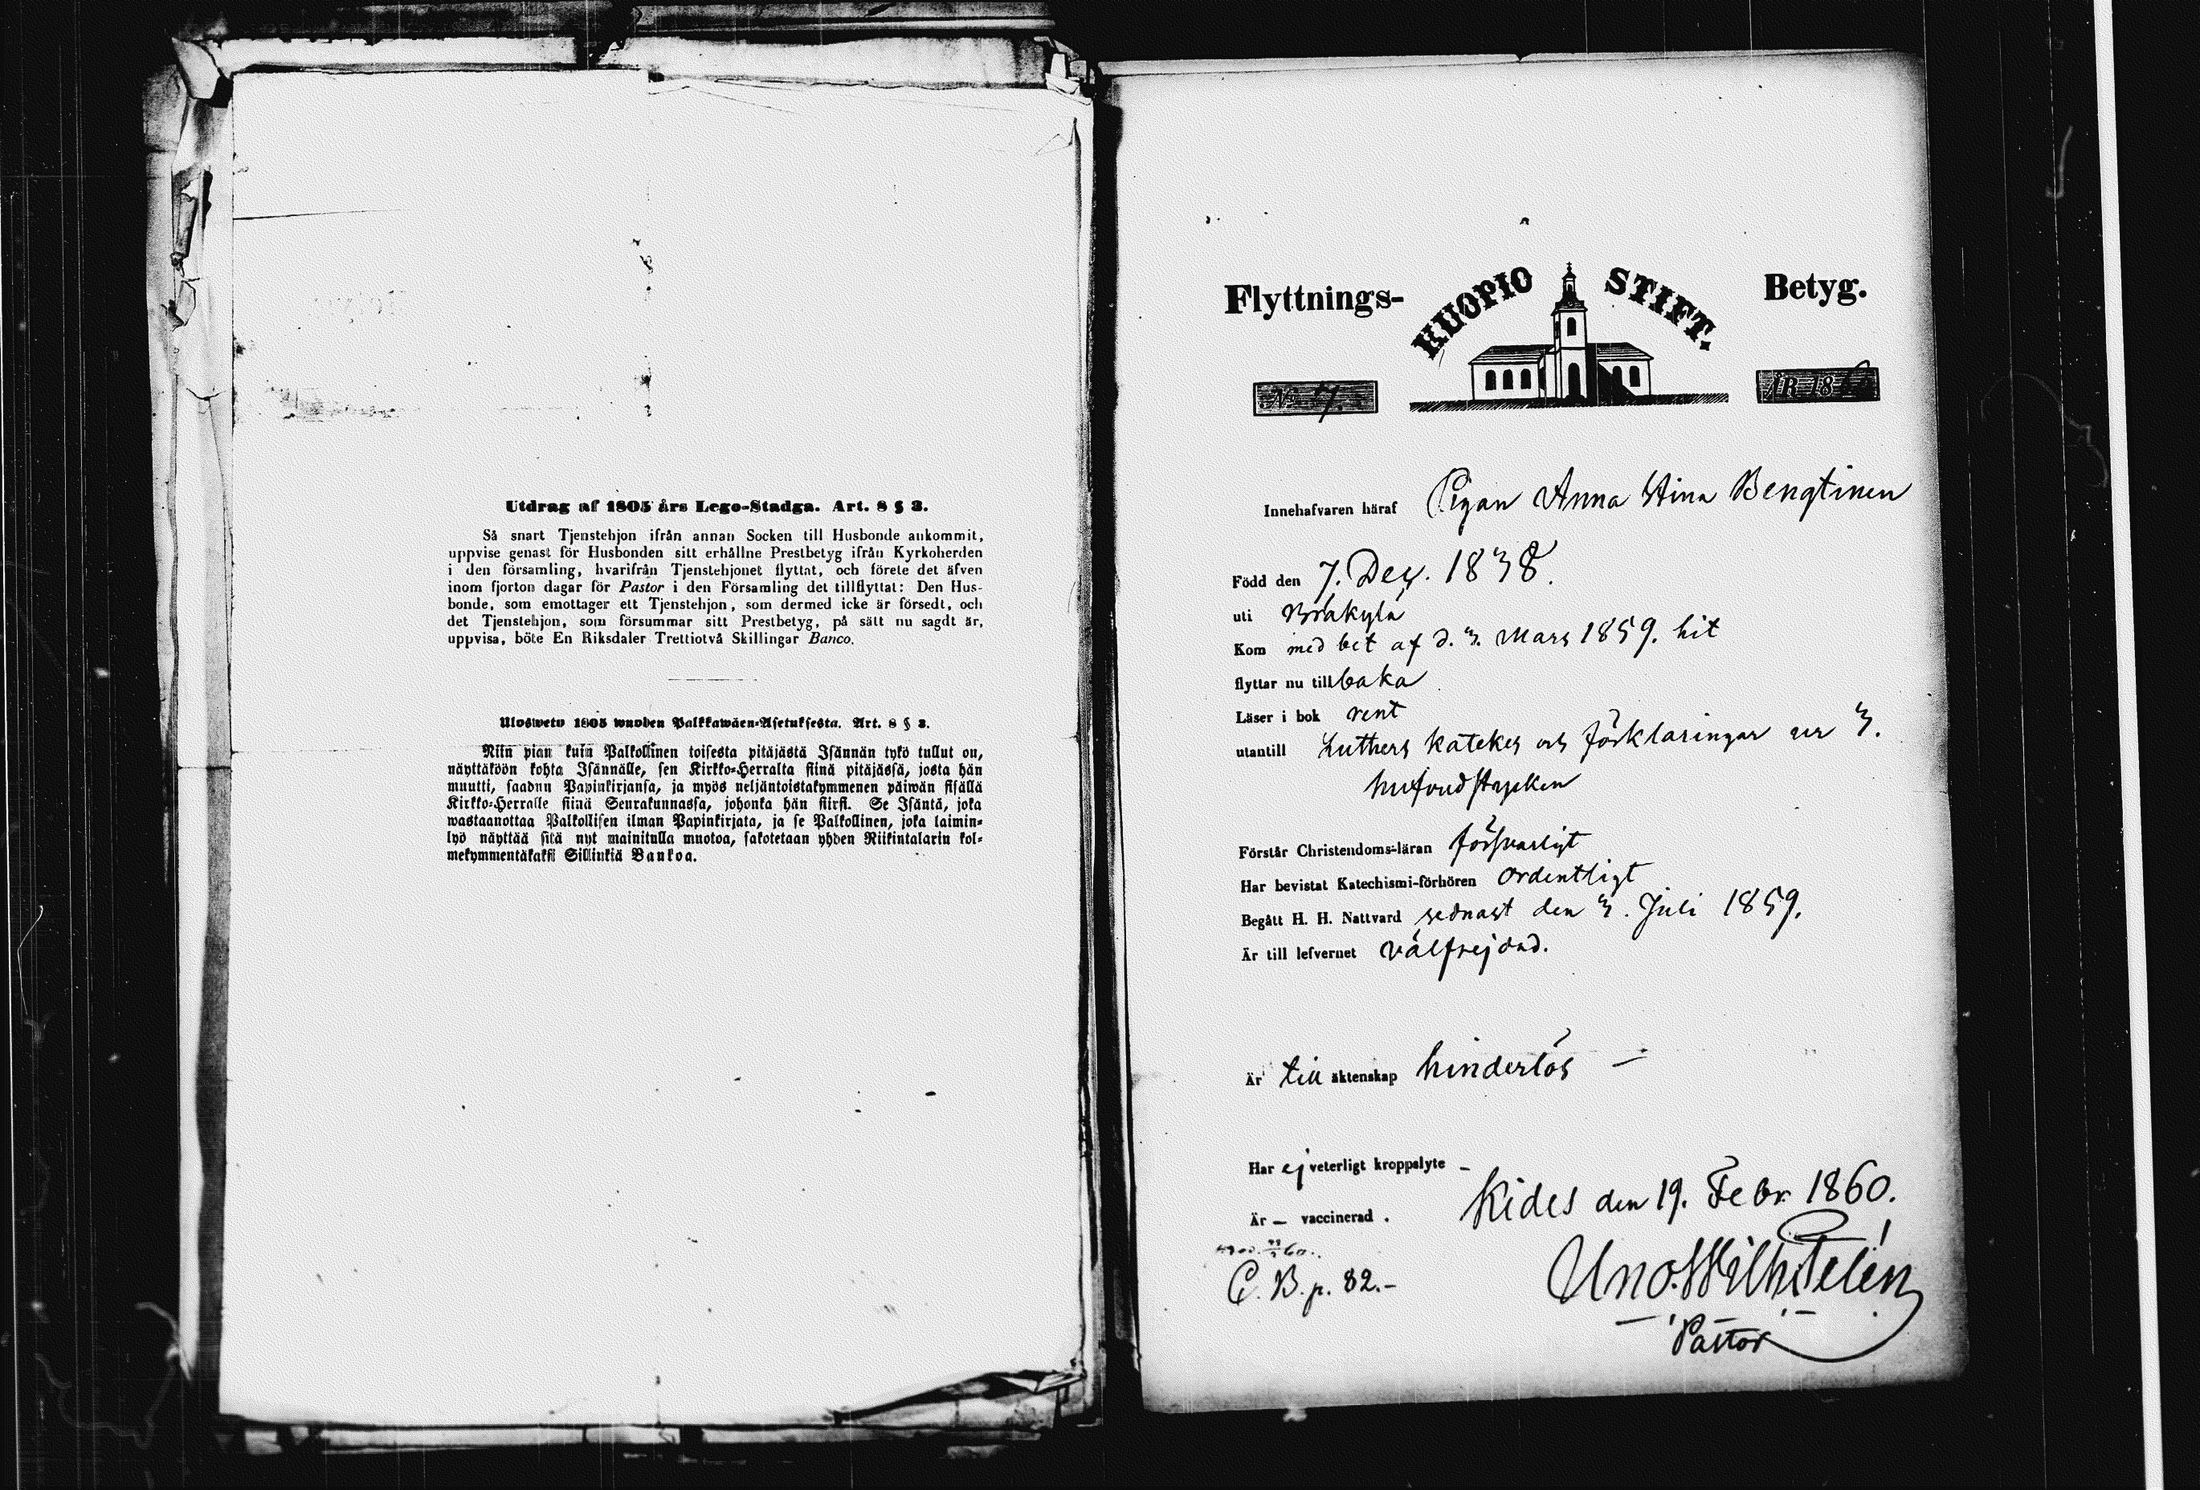 Utdrag af 1805 års Lego-Stadga. Art. 8 § 3.
Så snart Tjenstehjon ifrån annan Socken till Husbonde ankommit,
uppvise genast för Husbonden sitt erhållne Prestbetyg ifrån Kyrkoherden
i den församling, hvarifrån Tjenstehjonet flyttat, och förete det äfven
inom fjorton dagar för Pastor i den Församling det tillflyttat: Den Hus-
bonde, som emottager ett Tjenstehjon, som dermed icke är försedt, och
det Tjenstehjon, som försummar sitt Prestbetyg, på sätt nu sagdt är,
uppvisa, böte En Riksdaler Trettiotvå Skillingar Banco.
Uloswetv 1805 wuoden Palkkawäen-Asetuksesta. Art. 8 § 3.
Niin pian kuin Palkollinen toisesta pitäjästä Isännän tykö tullut on,
näyttäköön kohta Isännälle, sen Kirkko-Herralta siinä pitäjässä, josta hän
muutti, saadun Papinkirjansa, ja myös neljäntoistakymmenen päiwän sisällä
Kirkko-Herralle siinä Seurakunnassa, johonka hän siirsi. Se Isäntä, joka
wastaanottaa Palkollisen ilman Papinkirjata, ja se Palkollinen, joka laimin-
lyö näyttää sitä nyt mainitulla muotoa, sakotetaan yhden Riikintalarin kol-
mekymmentäkaksi Sillinkiä Bankoa.
Flyttnings- KUOPIO STIFT. Betyg.
No 7. ÅR 1860
Innehafvaren häraf Pigan Anna Stina Bengtinen
Född den 7. Dec. 1838.
uti Bräkylä
Kom med bet af d. 3. Mars 1859. hit
flyttar nu tillbaka
Läser i bok rent
utantill Luthers katekes och förklaringar ur 3.
hufvudstycken
Förstår Christendoms-läran försvarligt
Har bevistat Katechismi-förhören ordentligt
Begått H. H. Nattvard sednast den 3. Juli 1859.
Är till lefvernet välfrejdad.
Är till äktenskap hinderlös —
Har ej veterligt kroppslyte –
Är – vaccinerad .
Kides den 19. Febr. 1860.
C. B. p. 82.–
Uno. Wilh. Telén
Pastor